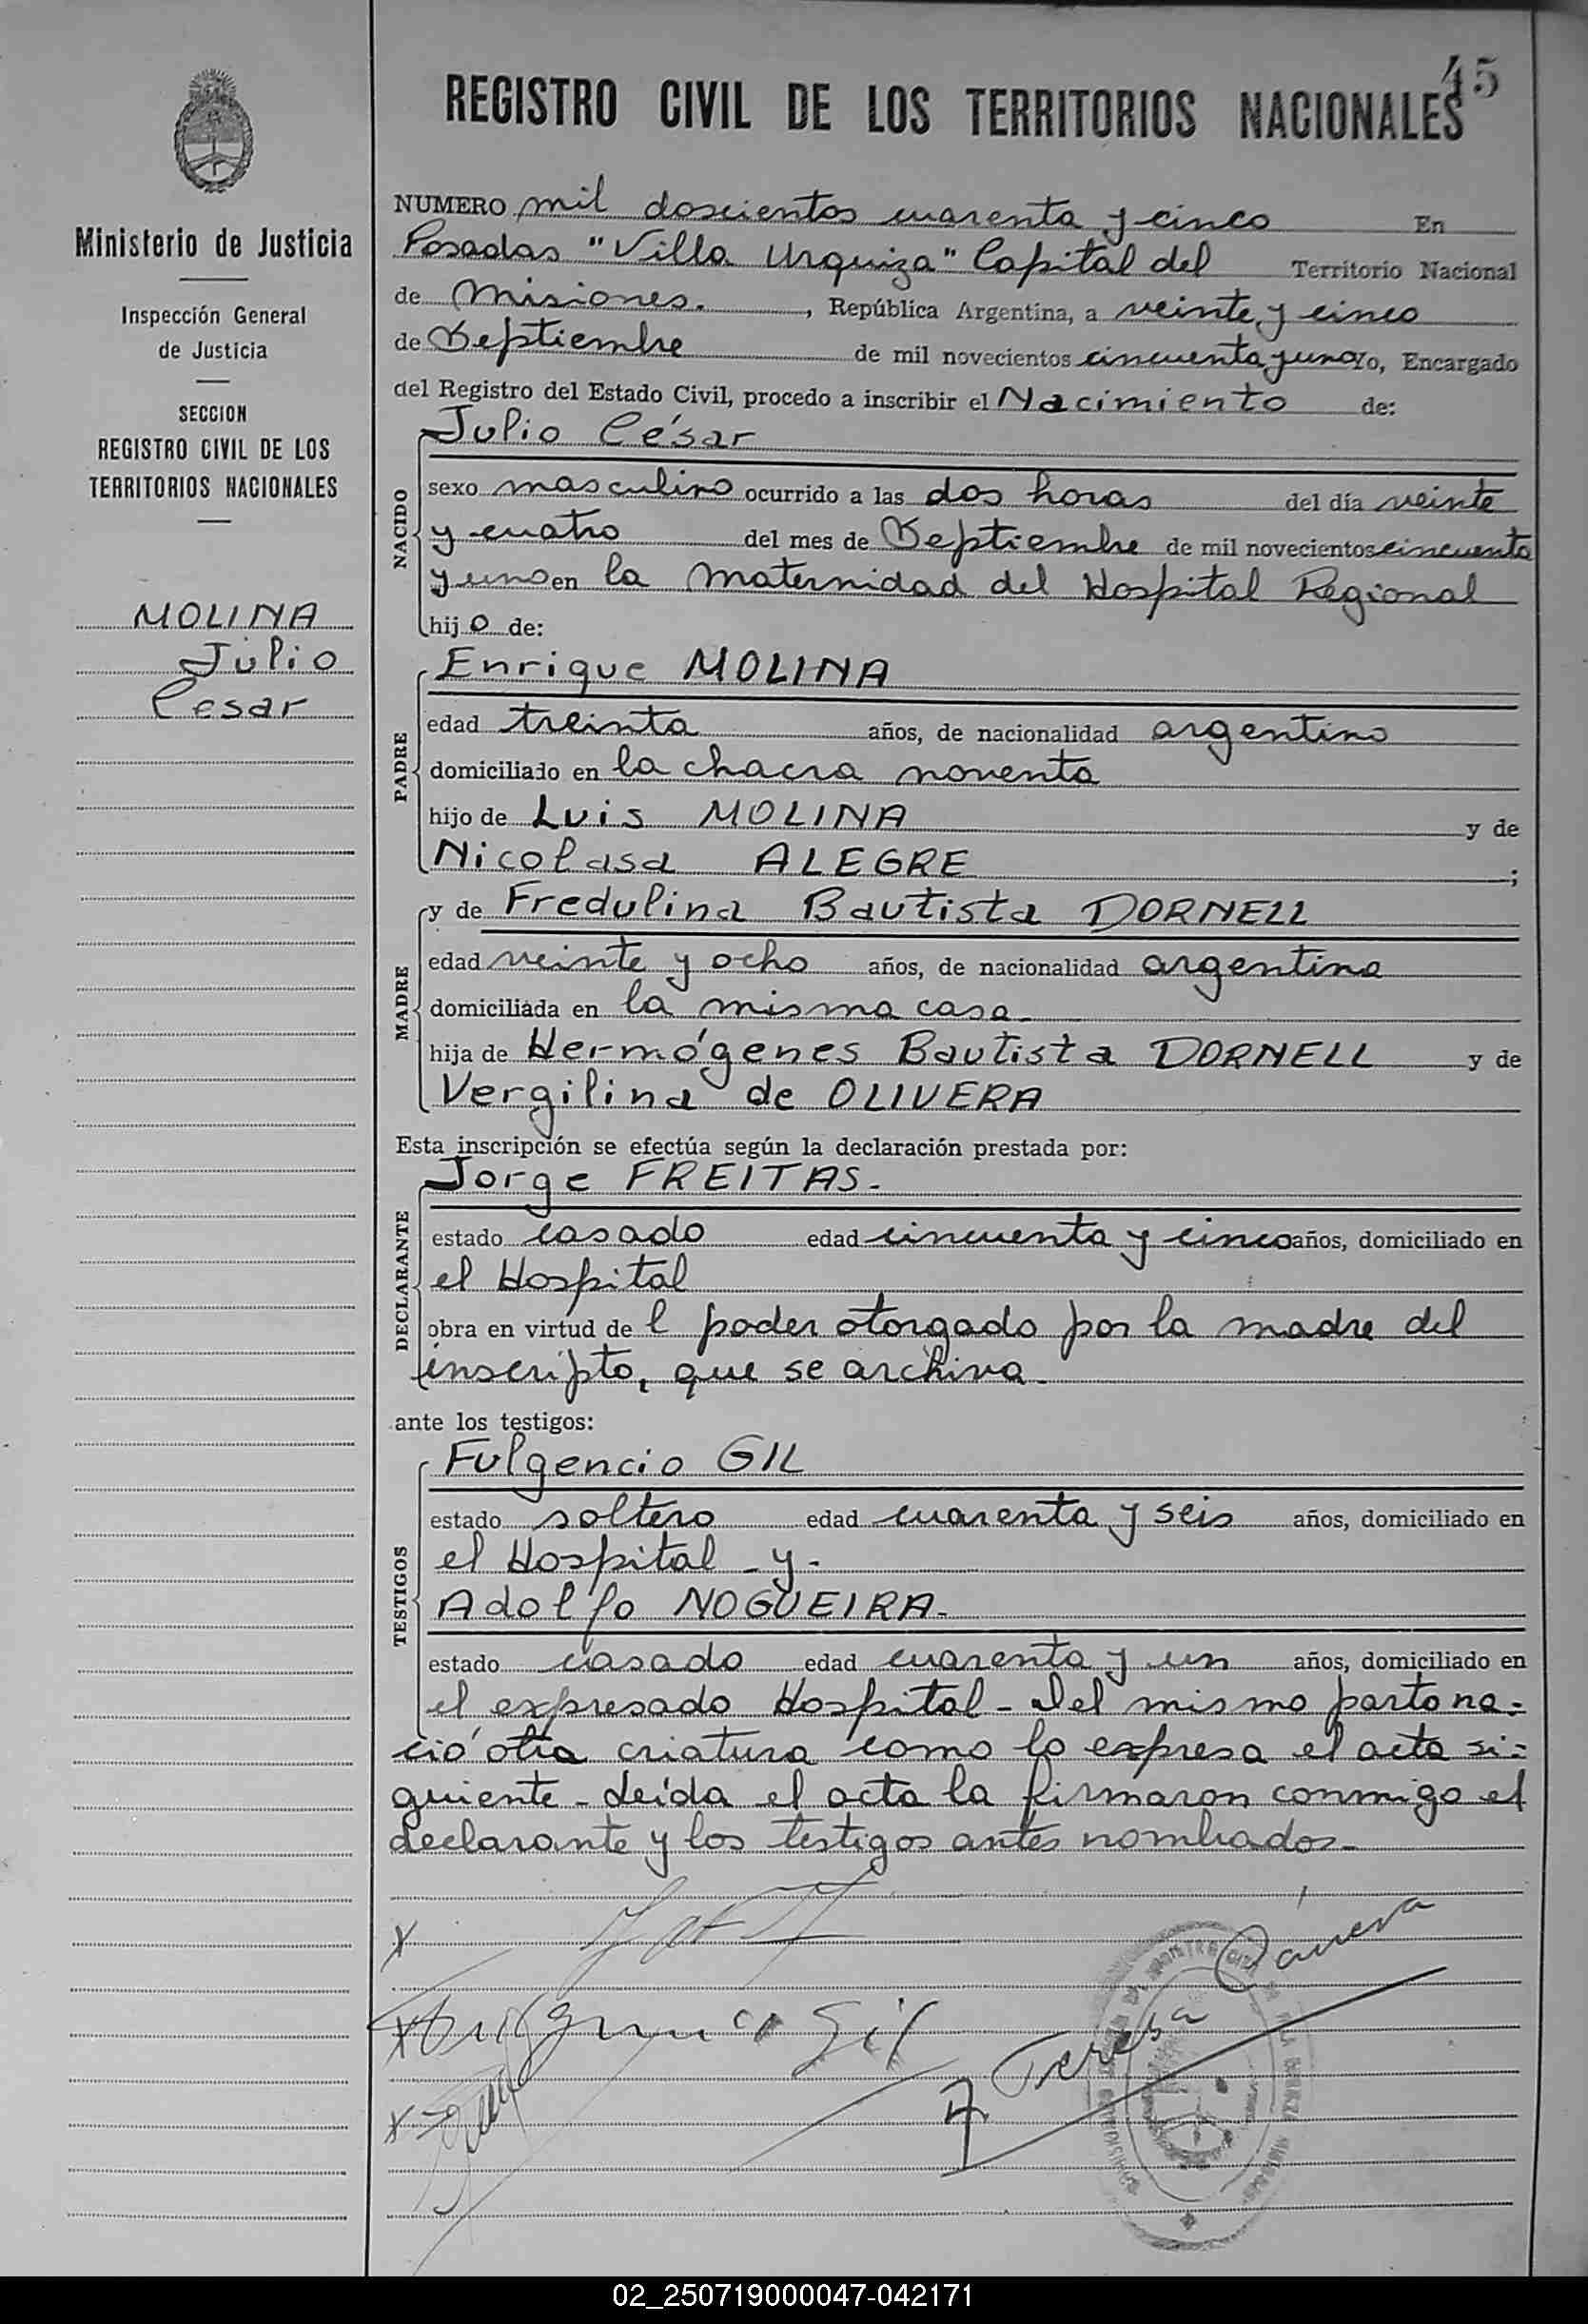 45
REGISTRO CIVIL DE LOS TERRITORIOS NACIONALES
Ministerio de Justicia
Inspección General
de Justicia
SECCION
REGISTRO CIVIL DE LOS
TERRITORIOS NACIONALES
MOLINA
Julio
Cesar
NUMERO mil doscientos cuarenta y cinco En
Posadas "Villa Urquiza" Capital del Territorio Nacional
de Misiones. , República Argentina, a veinte y cinco
de Septiembre de mil novecientos cincuenta y uno Yo, Encargado
del Registro del Estado Civil, procedo a inscribir el Nacimiento de:
Julio César
NACIDO
sexo masculino ocurrido a las dos horas del día veinte
y cuatro del mes de Septiembre de mil novecientos cincuenta
y uno en la maternidad del Hospital Regional
hijo de:
Enrique MOLINA
PADRE
edad treinta años, de nacionalidad argentino
domiciliado en la chacra noventa
hijo de Luis MOLINA y de
Nicolasa ALEGRE ;
y de Fredulina Bautista DORNELL
MADRE
edad veinte y ocho años, de nacionalidad argentina
domiciliada en la misma casa
hija de Hermógenes Bautista DORNELL y de
Vergilina de OLIVERA
Esta inscripción se efectúa según la declaración prestada por:
Jorge FREITAS.-
DECLARANTE
estado casado edad cincuenta y cinco años, domiciliado en
el Hospital
obra en virtud de l poder otorgado por la madre del
inscripto, que se archiva.
ante los testigos:
Fulgencio GIL
TESTIGOS
estado soltero edad cuarenta y seis años, domiciliado en
el Hospital - y -
Adolfo NOGUEIRA.-
estado casado edad cuarenta y un años, domiciliado en
el expresado Hospital - Del mismo parto na-
ció otra criatura como lo expresa el acta si-
guiente - Leída el acta la firmaron conmigo el
declarante y los testigos antes nombrados.-
X
X Fulgencio Gil
X
Teresa
02_250719000047-042171